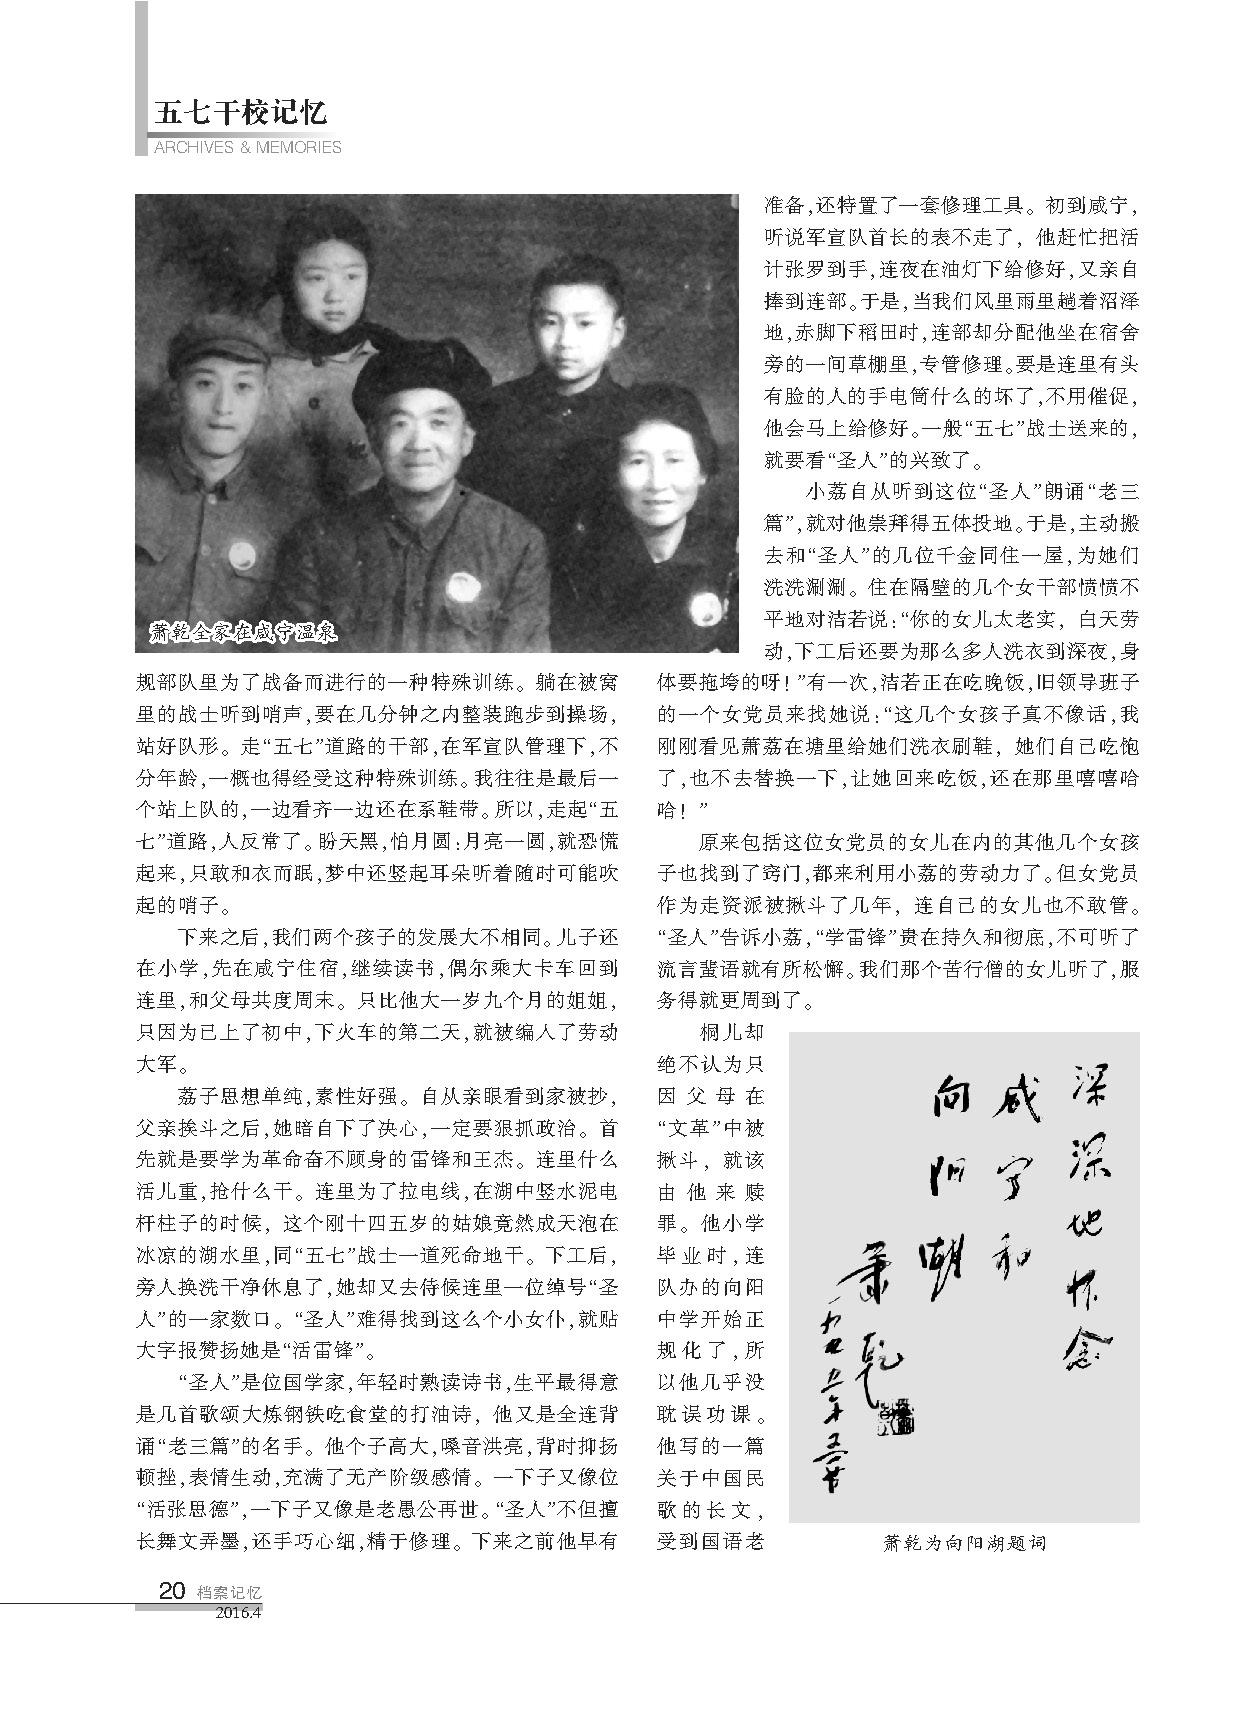 五七干校记忆
ARCHIVES & MEMORIES
萧乾全家在咸宁温泉
规部队里为了战备而进行的一种特殊训练。躺在被窝
里的战士听到哨声,要在几分钟之内整装跑步到操场,
站好队形。走“五七”道路的干部,在军宣队管理下,不
分年龄,一概也得经受这种特殊训练。我往往是最后一
个站上队的,一边看齐一边还在系鞋带。所以,走起“五
七”道路,人反常了。盼天黑,怕月圆:月亮一圆,就恐慌
起来,只敢和衣而眠,梦中还竖起耳朵听着随时可能吹
起的哨子。
下来之后,我们两个孩子的发展大不相同。儿子还
在小学,先在咸宁住宿,继续读书,偶尔乘大卡车回到
连里,和父母共度周末。只比他大一岁九个月的姐姐,
只因为已上了初中,下火车的第二天,就被编入了劳动
大军。
荔子思想单纯,素性好强。自从亲眼看到家被抄,
父亲挨斗之后,她暗自下了决心,一定要狠抓政治。首
先就是要学为革命奋不顾身的雷锋和王杰。连里什么
活儿重,抢什么干。连里为了拉电线,在湖中竖水泥电
杆柱子的时候,这个刚十四五岁的姑娘竟然成天泡在
冰凉的湖水里,同“五七”战士一道死命地干。下工后,
旁人换洗干净休息了,她却又去侍候连里一位绰号“圣
人”的一家数口。“圣人”难得找到这么个小女仆,就贴
大字报赞扬她是“活雷锋”。
“圣人”是位国学家,年轻时熟读诗书,生平最得意
是几首歌颂大炼钢铁吃食堂的打油诗,他又是全连背
诵“老三篇”的名手。他个子高大,嗓音洪亮,背时抑扬
顿挫,表情生动,充满了无产阶级感情。一下子又像位
“活张思德”,一下子又像是老愚公再世。“圣人”不但擅
长舞文弄墨,还手巧心细,精于修理。下来之前他早有
准备,还特置了一套修理工具。初到咸宁,
听说军宣队首长的表不走了,他赶忙把活
计张罗到手,连夜在油灯下给修好,又亲自
捧到连部。于是,当我们风里雨里趟着沼泽
地,赤脚下稻田时,连部却分配他坐在宿舍
旁的一间草棚里,专管修理。要是连里有头
有脸的人的手电筒什么的坏了,不用催促,
他会马上给修好。一般“五七”战士送来的,
就要看“圣人”的兴致了。
小荔自从听到这位“圣人”朗诵“老三
篇”,就对他崇拜得五体投地。于是,主动搬
去和“圣人”的几位千金同住一屋,为她们
洗洗涮涮。住在隔壁的几个女干部愤愤不
平地对洁若说:“你的女儿太老实,白天劳
动,下工后还要为那么多人洗衣到深夜,身
体要拖垮的呀!”有一次,洁若正在吃晚饭,旧领导班子
的一个女党员来找她说:“这几个女孩子真不像话,我
刚刚看见萧荔在塘里给她们洗衣刷鞋,她们自己吃饱
了,也不去替换一下,让她回来吃饭,还在那里嘻嘻哈
哈!”
原来包括这位女党员的女儿在内的其他几个女孩
子也找到了窍门,都来利用小荔的劳动力了。但女党员
作为走资派被揪斗了几年,连自己的女儿也不敢管。
“圣人”告诉小荔,“学雷锋”贵在持久和彻底,不可听了
流言蜚语就有所松懈。我们那个苦行僧的女儿听了,服
务得就更周到了。
桐儿却
绝不认为只
因父母在
“文革”中被
揪斗,就该
由他来赎
罪。他小学
毕业时,连
队办的向阳
中学开始正
规化了,所
以他几乎没
耽误功课。
他写的一篇
关于中国民
歌的长文,
受到国语老
深深地怀念
咸宁和
向阳湖
萧乾
萧乾为向阳湖题词
20 档案记忆
2016.4